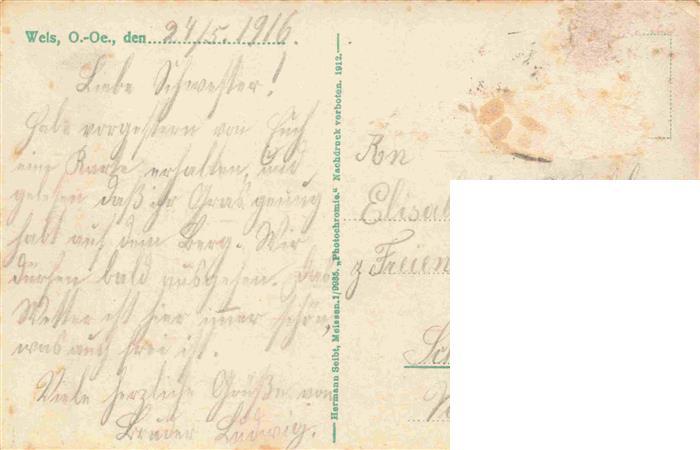 Wels, O.-Oe., den 24/5. 1916.
Liebe Schwester!
Habe vorgestern von Euch
eine Karte erhalten, und
gelesen daß ihr Gras genung
habt auf dem Berg. Wir
dürfen bald ausgehen. Das
Wetter ist hier imer schön,
was auch frei ist.
Viele herzliche Grüße von
Bruder Ludwig.
Hermann Seibt, Meissen. 1/9935. „Photochromie." Nachdruck verboten. 1912.
An
Elisa